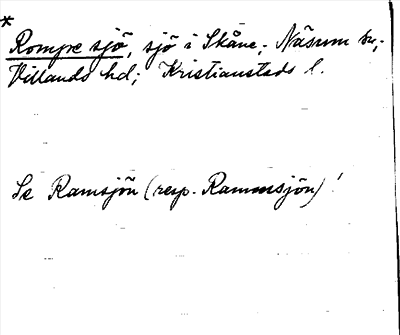 *
Rompresjö, sjö i Skåne; Näsum sn;
Villands hd; Kristianstads l.
Se Ramsjön (resp. Rammsjön)!